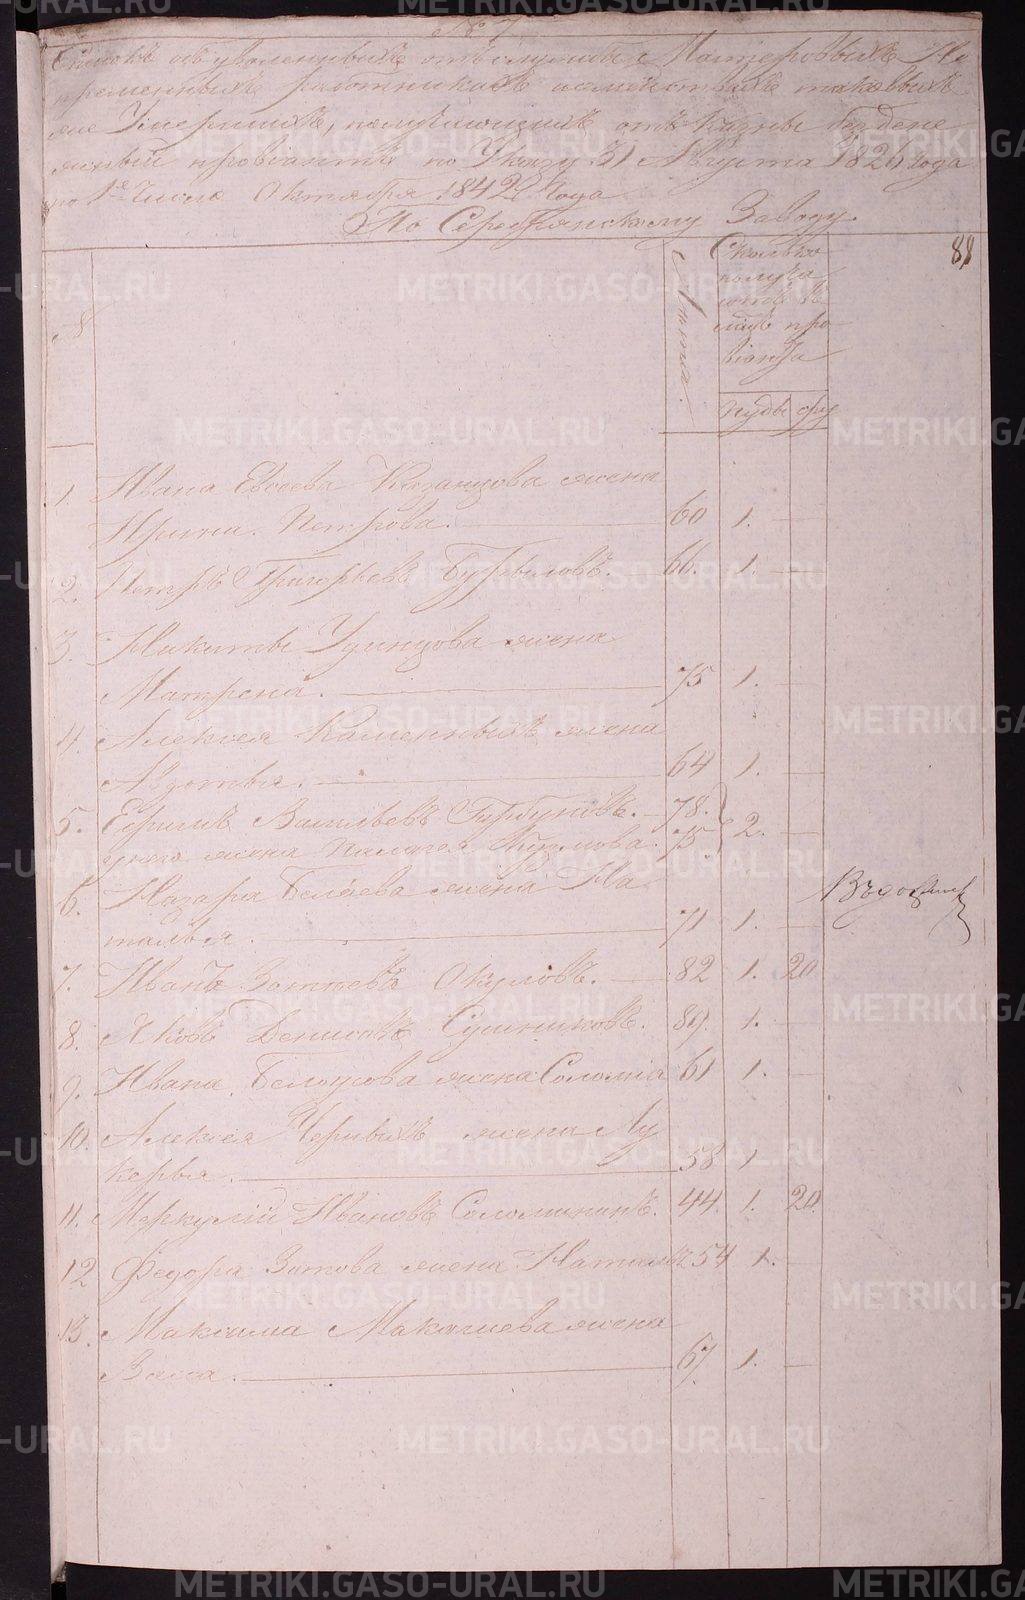 № 7
Списокъ объ уволенныхъ отъ службы Мастеровыхъ Не
пременныхъ работникахъ и семействахъ таковыхъ
же Умершихъ, получающихъ отъ казны бездене
жный провіантъ по Указу 31 Августа 1826 года
по 1е число Октября 1842 Года
По Серебрянскому Заводу
88
№
Лѣта
Сколько
получа
ютъ въ
мѣсяцъ про-
віанта
Пуды фун
1. Ивана Евсеева Казанцова жена
Ирина Петрова. 60 1. —
2. Петръ Григорьевъ Бурвиловъ. 66. 1. —
3. Никиты Удинцова жена
Матрена. 75 1. —
4. Алексея Каменныхъ жена
Авдотья. 64 1. —
5. Ефимъ Васильевъ Горбуновъ. 78.
у него жена Палагея Карпова. 75 2. —
6. Назара Беляева жена На
талья. 71 1. —
Въдо
7. Иванъ Зотеевъ Окуловъ. 82 1. 20
8. Яковъ Денисовъ Сушниковъ. 89. 1. —
9. Ивана Белоусова жена Соломіа 61 1. —
10. Алексея Черныхъ жена Лу
керья. 58 1
11. Меркулій Ивановъ Соломининъ. 44. 1. 20.
12 Федора Зотова жена Наталья 54 1. —
13. Максима Макашева жена
Васса. 67. 1. —
METRIKI.GASO-URAL.RU